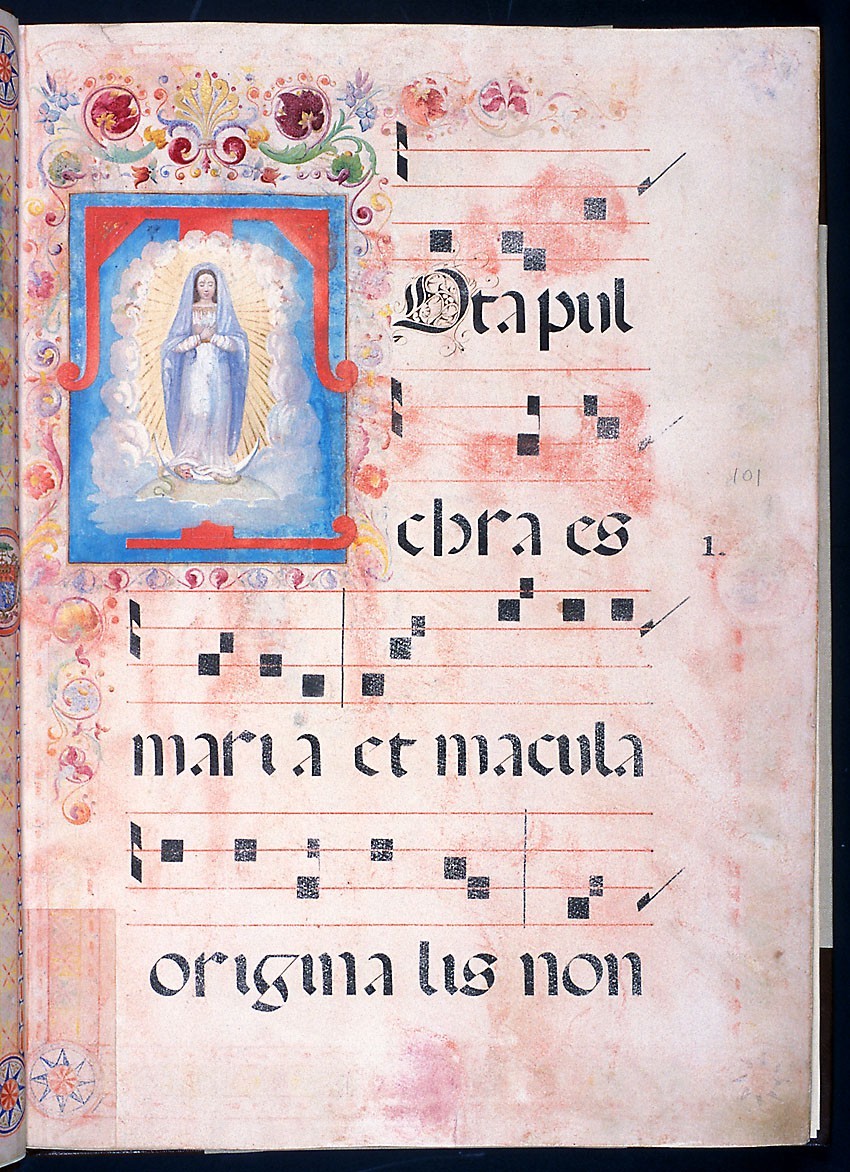 TOta pul
chra es
maria et macula
originalis non
101
1.